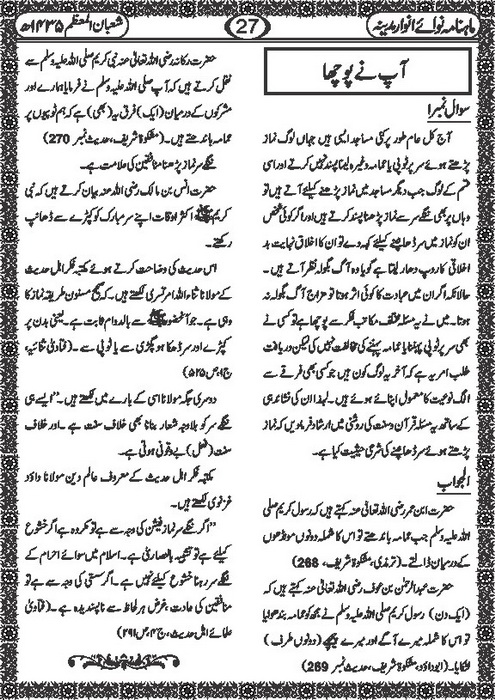 ماہنامہ نوائے انوار مدینہ
27
شعبان المعظم ۱۴۳۵ھ
آپ نے پوچھا
سوال نمبر ۱
آج کل عام طور پر کئی مساجد ایسی ہیں جہاں لوگ نماز
پڑھتے ہوئے سر پر ٹوپی یا عمامہ وغیرہ لینا پسند نہیں کرتے اور اسی
قسم کے لوگ جب دیگر مساجد میں نماز پڑھنے کیلئے آتے ہیں تو
وہاں پر بھی ننگے سر سے نماز پڑھنا پسند کرتے ہیں اور اگر کوئی شخص
ان کو نماز میں سر ڈھانپنے کیلئے کہہ دے تو ان کا اخلاق نہایت بد
اخلاقی کا روپ دھار لیتا ہے گویا وہ آگ بگولہ نظر آتے ہیں۔
حالانکہ اگر ان میں عبادت کا کوئی اثر ہوتا تو مزاج آگ بگولہ نہ
ہوتا۔ میں نے یہ مسئلہ مختلف مکاتب فکر سے پوچھا ہے تو کسی نے
بھی سر پر ٹوپی پہننا یا عمامہ پہننے کی مخالفت نہیں کی لیکن دریافت
طلب امر یہ ہے کہ آخر یہ لوگ کون ہیں جو کسی بھی فرقے سے
الگ نوعیت کا معمول اپنائے ہوئے ہیں۔ لہٰذا ان کی نشاندہی
کے ساتھ یہ مسئلہ قرآن و سنت کی روشنی میں ارشاد فرمادیں کہ نماز
پڑھتے ہوئے سر ڈھانپنے کی شرعی حیثیت کیا ہے۔
الجواب
حضرت ابن عمر رضی اللہ تعالیٰ عنہ کہتے ہیں کہ رسول کریم صلی
اللہ علیہ وسلم جب عمامہ باندھتے تو اس کا شملہ دونوں مونڈھوں
کے درمیان ڈالتے۔ (ترمذی، مشکوٰۃ شریف، 268)
حضرت عبدالرحمٰن بن عوف رضی اللہ تعالیٰ عنہ کہتے ہیں کہ
(ایک دن) رسول کریم صلی اللہ علیہ وسلم نے مجھ کو عمامہ بندھوایا
تو اس کا شملہ میرے آگے اور میرے پیچھے (دونوں طرف)
لٹکایا۔ (ابوداؤد، مشکوٰۃ شریف، حدیث نمبر 269)
حضرت رکانہ رضی اللہ تعالیٰ عنہ نبی کریم صلی اللہ علیہ وسلم سے
نقل کرتے ہیں کہ آپ صلی اللہ علیہ وسلم نے فرمایا ہمارے اور
مشرکوں کے درمیان (ایک) فرق یہ (بھی) ہے کہ ہم ٹوپیوں پر
عمامہ باندھتے ہیں۔ (مشکوٰۃ شریف، حدیث نمبر 270)
ننگے سر نماز پڑھنا منافقین کی علامت ہے۔
حضرت انس بن مالک رضی اللہ عنہ بیان کرتے ہیں کہ نبی
کریم ﷺ اکثر اوقات اپنے سر مبارک کو کپڑے سے ڈھانپ
رکھتے۔
اس حدیث کی وضاحت کرتے ہوئے مکتبہ فکر اہل حدیث
کے مولانا ثناء اللہ امرتسری لکھتے ہیں۔ کہ صحیح مسنون طریقہ نماز کا
وہی ہے۔ جو آنحضور ﷺ سے بالدوام ثابت ہے۔ یعنی بدن پر
کپڑے اور سر ڈھکا ہو پگڑی سے یا ٹوپی سے۔ (فتاویٰ ثنائیہ،
ج۱، ص۵۲۵)
دوسری جگہ مولانا اسی کے بارے میں لکھتے ہیں۔ "ایسے ہی
ننگے سر کو بلاوجہ شعار بنانا بھی خلاف سنت ہے۔ اور خلاف
سنت (فعل) بے وقوفی ہوتی ہے۔
مکتبہ فکر اہل حدیث کے معروف عالم دین مولانا داؤد
غزنوی لکھتے ہیں۔
"اگر ننگے سر نماز فیشن کی وجہ سے ہے تو مکروہ ہے اگر خشوع
کیلئے ہے تو تشبیہ بالنصاریٰ ہے۔ اسلام میں سوائے احرام کے
ننگے سر رہنا خشوع کیلئے نہیں ہے۔ اگر سستی کی وجہ سے ہے تو
منافقین کی عادت، غرض ہر لحاظ سے ناپسندیدہ ہے۔ (فتاویٰ
علمائے اہل حدیث، ج۴، ص۲۹۱)